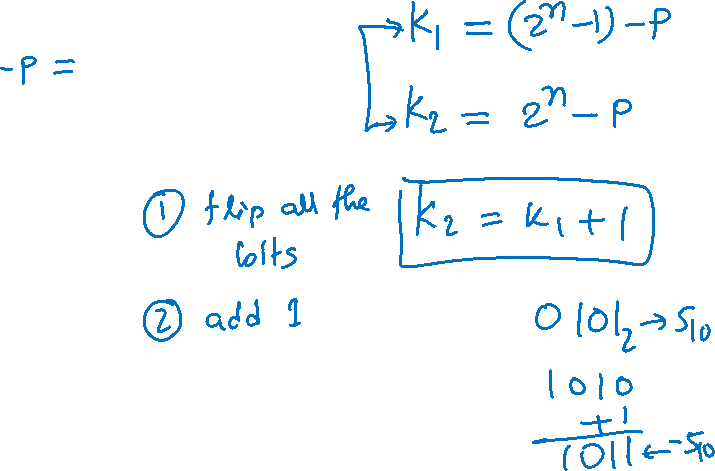 K₁ = (2ⁿ-1)-P
-P =
K₂ = 2ⁿ - P
① flip all the bits
K₂ = K₁ + 1
② add 1
0101₂ → 5₁₀
1010
+1
1011 ← -5₁₀